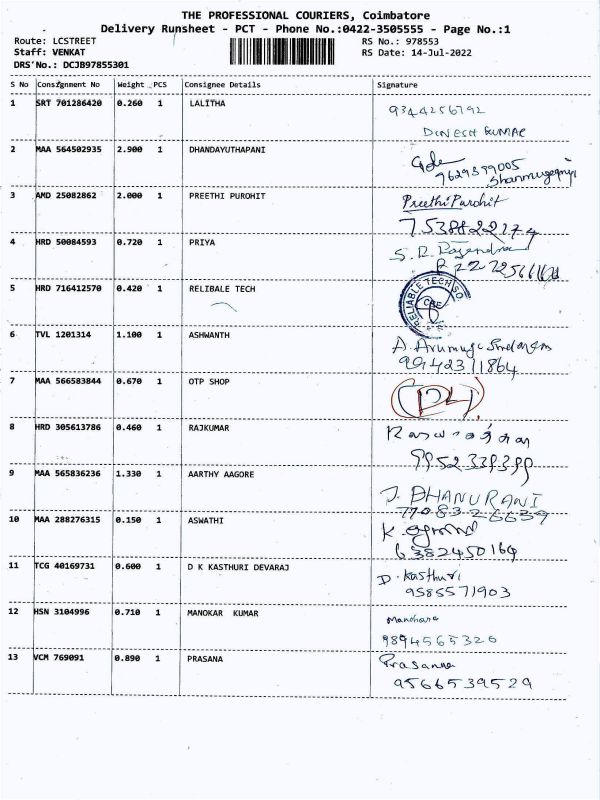 THE PROFESSIONAL COURIERS, Coimbatore
Delivery Runsheet - PCT - Phone No.:0422-3505555 - Page No.:1
Route: LCSTREET RS No.: 978553
Staff: VENKAT RS Date: 14-Jul-2022
DRS No.: DCJB97855301
S No Consignment No Weight PCS Consignee Details Signature
1 SRT 701286420 0.260 1 LALITHA 9344256792
DINESH KUMAR
2 MAA 564502935 2.900 1 DHANDAYUTHAPANI
9629399005
3 AMD 25082862 2.000 1 PREETHI PUROHIT Preethi Purohit
7538822174
4 HRD 50084593 0.720 1 PRIYA S. R. Rajendra
5 HRD 716412570 0.420 1 RELIBALE TECH RELIABLE TECH SO
6 TVL 1201314 1.100 1 ASHWANTH A. Arumuga
9942311864
7 MAA 566583844 0.670 1 OTP SHOP
8 HRD 305613786 0.460 1 RAJKUMAR
9 MAA 565836236 1.330 1 AARTHY AAGORE J. DHANURANI
7708326639
10 MAA 288276315 0.150 1 ASWATHI K.
6382450164
11 TCG 40169731 0.600 1 D K KASTHURI DEVARAJ D. Kasthuri
9585571903
12 HSN 3104996 0.710 1 MANOKAR KUMAR Manohara
9894565320
13 VCM 769091 0.890 1 PRASANA Prasanna
9566539529